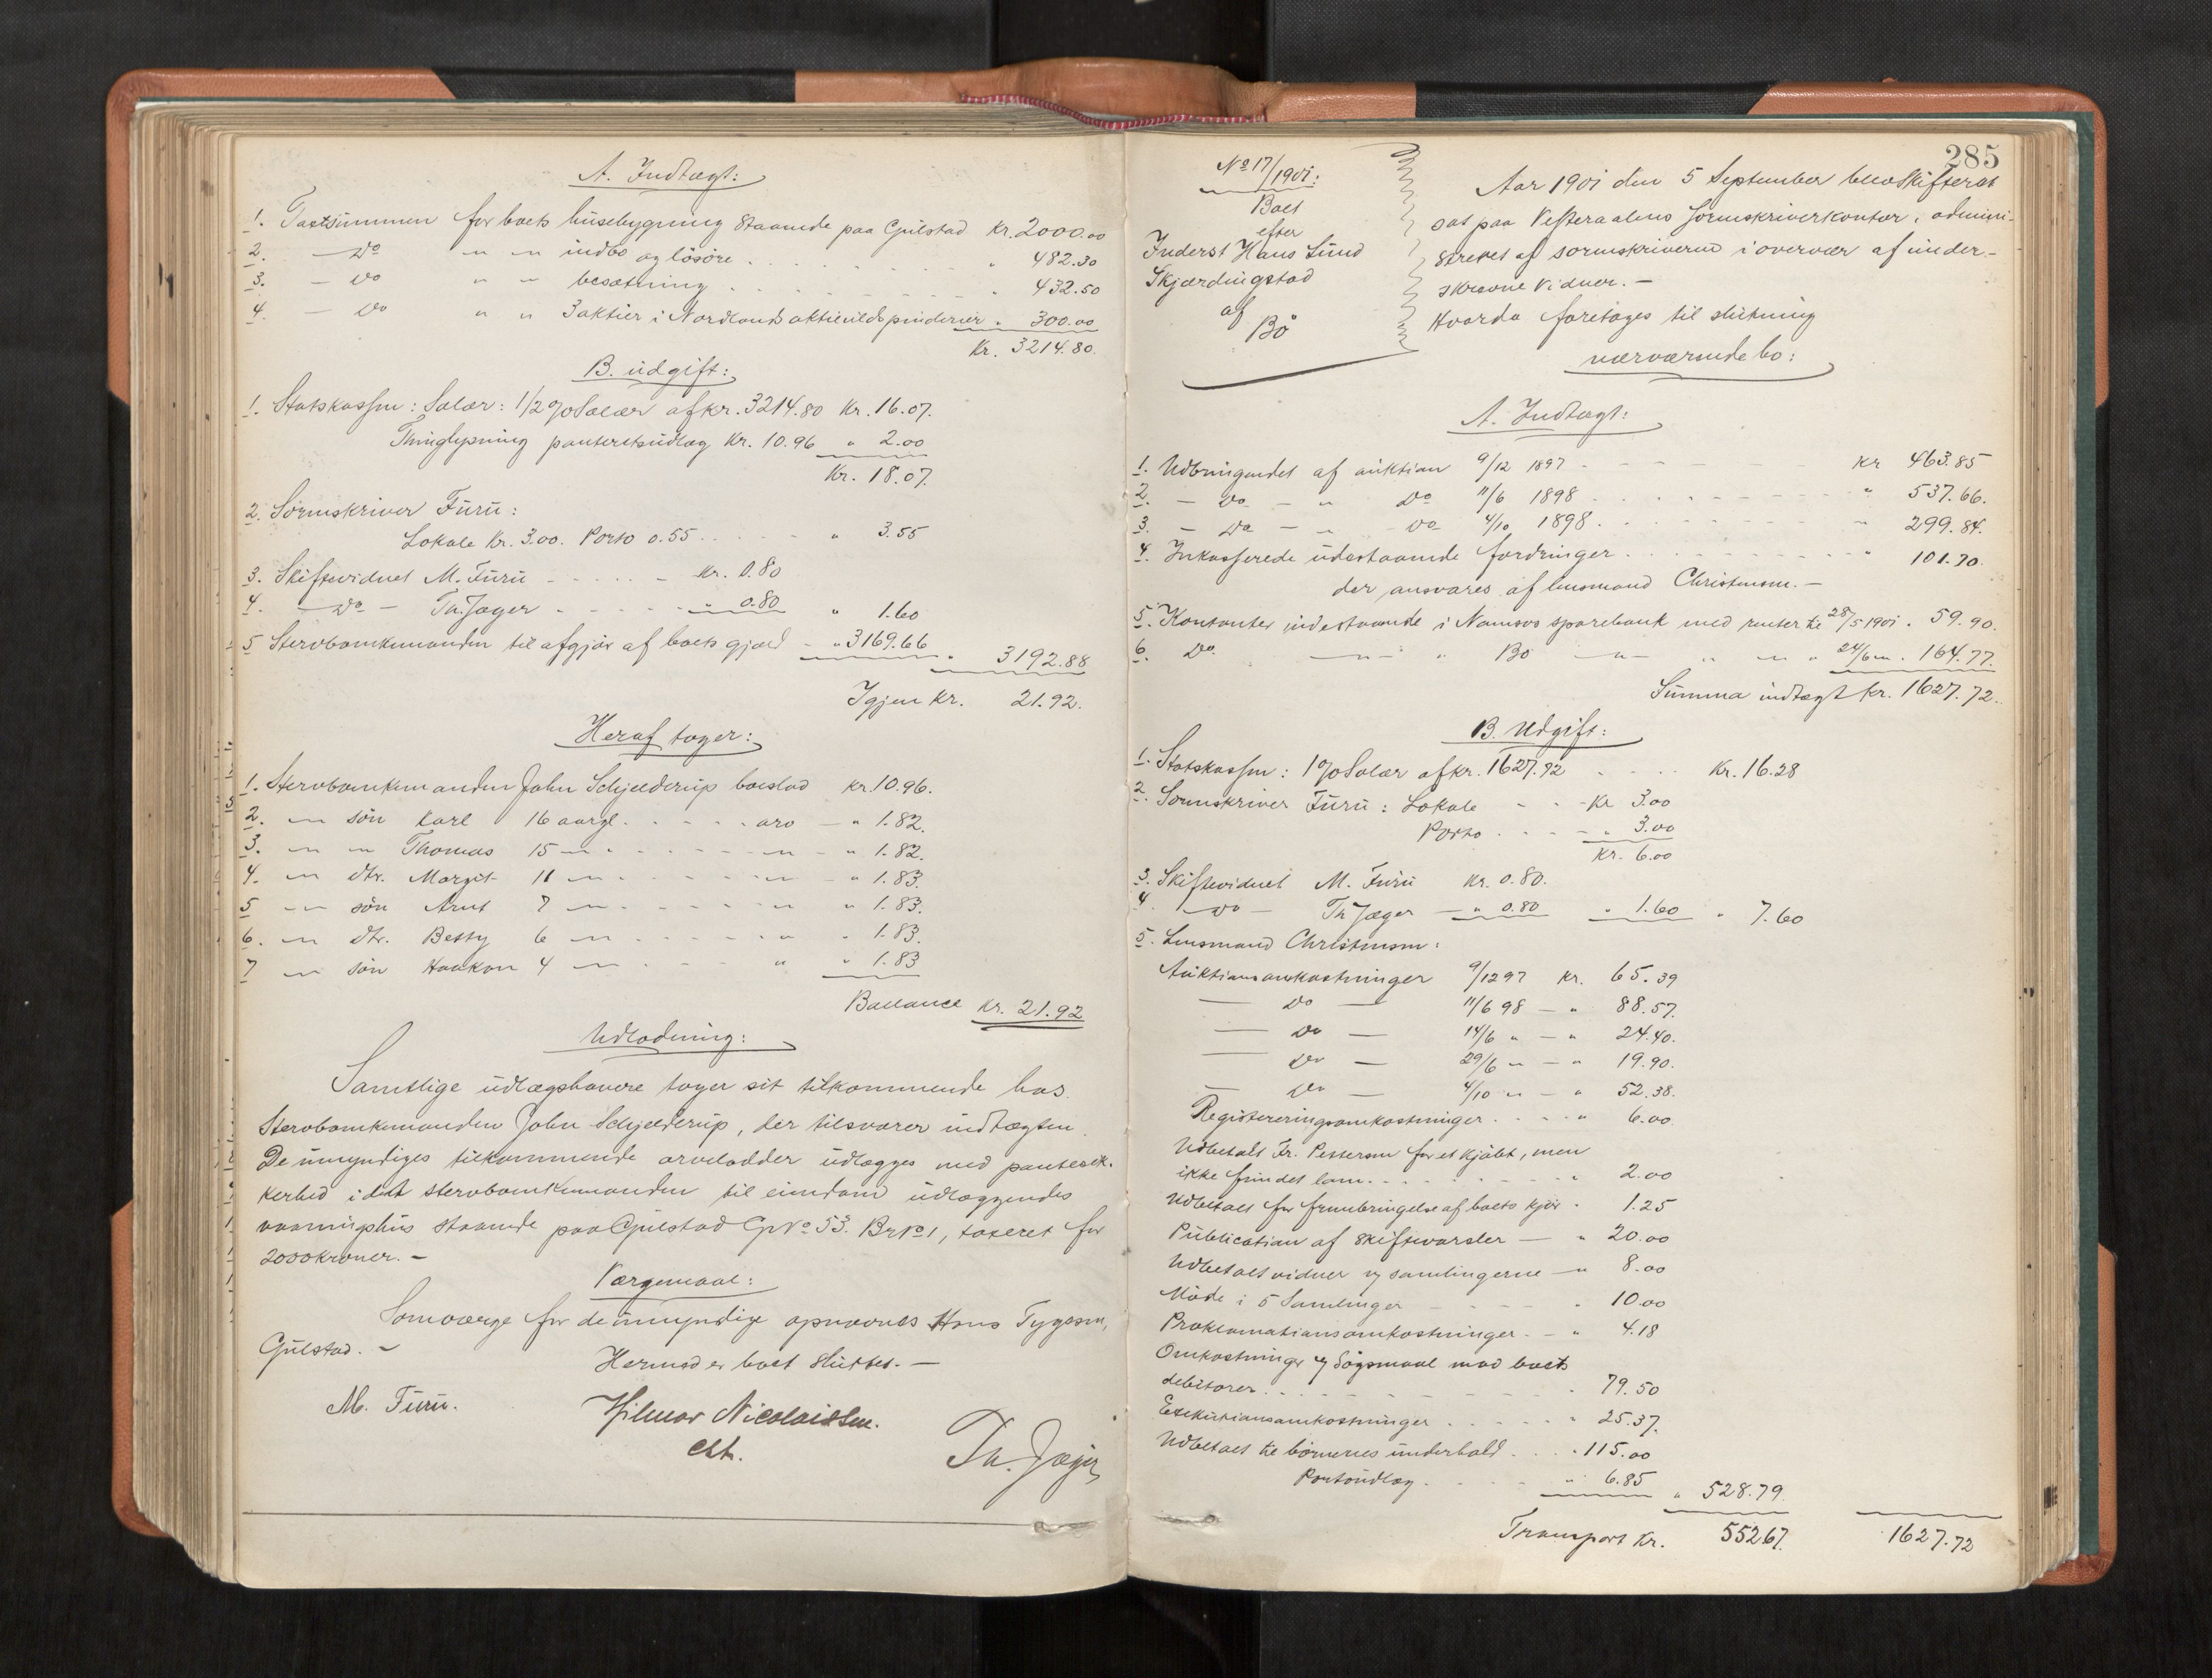 A. Indtægt:
1. Taxtsummen for boets husebygning staaende paa Gulstad Kr. 2000.00
2. — Do „ „ indbo og lösöre . . . „ 482.30
3. — Do „ „ besætning . . . „ 432.50
4. — Do „ „ 3 aktier i Nordlands aktieuldspinderier „ 300.00
Kr. 3214.80.
B. Udgift:
1. Statskassen: Salær: 1/2 % Salær af kr. 3214.80 Kr. 16.07.
Thinglysning panteretsudlæg Kr. 10.96 „ 2.00
Kr. 18.07.
2. Sorenskriver Furu:
Lokale Kr. 3.00. Porto 0.55 . . . „ 3.55
3. Skiftevidnet M. Furu - - - Kr. 0.80
4. — Do — Th. Jæger - - - „ 0.80 „ 1.60
5 Stervboenkemanden til afgjör af boets gjæld - „ 3169.66 „ 3192.88
Igjen Kr. 21.92.
Heraf tager:
1. Stervboenkemanden John Schjelderup boeslod Kr. 10.96.
2. „ sön Karl 16 aargl. . . . . arv — „ 1.82.
3. „ „ Thomas 15 „ . . . . „ — „ 1.82.
4. „ dtr. Margit 11 „ . . . . „ — „ 1.83.
5 „ sön Arnt 7 „ . . . . „ „ 1.83.
6. „ dtr. Betsy 6 „ . . . . „ „ 1.83.
7 „ sön Haakon 4 „ . . . . „ „ 1.83
Ballance Kr. 21.92
Udlodning:
Samtlige udlægshavere tager sit tilkommende hos
Stervboenkemanden John Schjelderup, der tilsvarer indtægten.
De umyndiges tilkommende arvelodder udlægges med pantesik-
kerhed i det stervboenkemanden til eiendom udlæggendes
vaaningshus staaende paa Gulstad GNo 53. BrNo 1, taxeret for
2000 kroner. —
Værgemaal:
Som værge for de umyndige opnævnes Hans Tygesen,
Gulstad. —
Hermed er boet sluttet. —
M. Furu.
Hilmar Nicolaissen.
cst.
Th. Jæger
285
No 17/1901:
Boet
efter
Inderst Hans Lund
Skjærdingstad
af
Bö
Aar 1901 den 5 September blev Skifteret
sat paa Vesteraalens Sorenskriverkontor, admini-
streret af sorenskriveren i overvær af under-
skrevne vidner. —
Hvorda foretages til slutning
nærværende bo:
A. Indtægt:
1. Udbringendet af auktion 9/12 1897 - - - Kr 463.85
2. — Do — „ Do 11/6 1898 . . . „ 537.66.
3. — Do — „ Do 4/10 1898 . . . „ 299.84.
4. Inkasserede udestaaende fordringer . . . „ 101.70.
der ansvares af lensmand Christensen. —
5. Kontanter indestaaende i Namsos sparebank med renter til 28/5 1901 . 59.90.
6. Do. — „ — „ Bö — „ — „ „ „ 24/6 „ . 164.77.
Summa indtægt kr. 1627.72.
B. Udgift:
1. Statskassen: 1 % Salær af kr. 1627.72 . . . Kr. 16.28
2. Sorenskriver Furu: Lokale - - - Kr 3.00
Porto . . . - „ 3.00
Kr. 6.00
3. Skiftevidnet M. Furu Kr. 0.80.
4. — Do — Th Jæger — „ 0.80 „ 1.60 „ 7.60
5. Lensmand Christensen:
Auktionsomkostninger 9/12 97 Kr. 65.39
— Do — 11/6 98 — „ 88.57.
— Do — 14/6 „ — „ 24.40.
— Do — 29/6 „ — „ 19.90.
— Do — 4/10 „ — „ 52.38.
Registereringsomkostninger . . . „ 6.00
Udbetalt Fr. Petterson for et kjöbt, men
ikke fundet lam . . . „ 2.00
Udbetalt for frembringelse af boets kjör . 1.25
Publication af skiftevarsler — „ 20.00
Udbetalt vidner og samlingerne — „ 8.00
Möde i 5 Samlinger - - - „ 10.00
Proklamationsomkostninger. - „ 4.18
Omkostninger og Sögsmaal mod boets
debitorer . . . . 79.50
Exekutionsomkostninger . . . „ 25.37.
Udbetalt til börnenes underhold . . . „ 115.00
Portoudlæg . . . „ 6.85 „ 528.79.
Transport Kr. 552.67. 1627.72